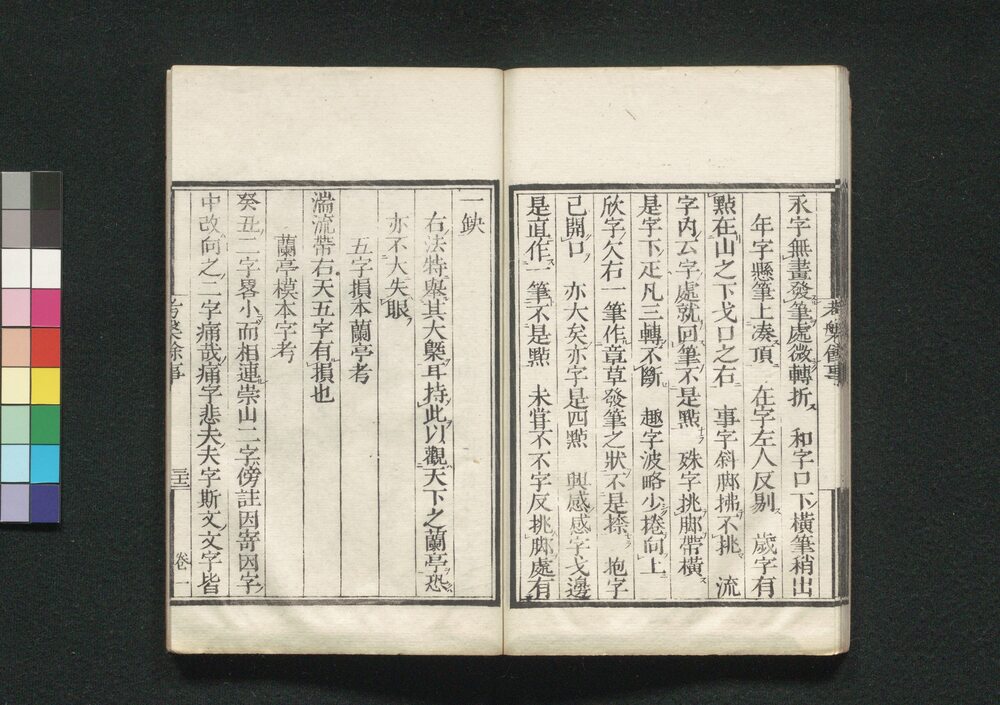 永字無畫發筆處微轉折 和字口下橫筆稍出
年字懸筆上湊頂 在字左人反剔 歲字有
點在山之下戈口之右 事字斜脚拂不挑 流
字内云字處就回筆不是點 殊字挑脚帶橫
是字下疋凡三轉不斷 趣字波略少捲向上
欣字欠右一筆作章草發筆之狀不是捺 抱字
已開口 亦大矣亦字是四點 興感感字戈邊
是直作一筆不是點 未甞不不字反挑脚處有
一鈌
右法特舉其大槩耳持此以觀天下之蘭亭恐
亦不大失眼
五字損本蘭亭考
湍流帶右天五字有損也
蘭亭模本字考
癸丑二字畧小而相連崇山二字傍註因寄因字
中改向之二字痛哉痛字悲夫夫字斯文文字皆
考槃餘事
三十三
卷一